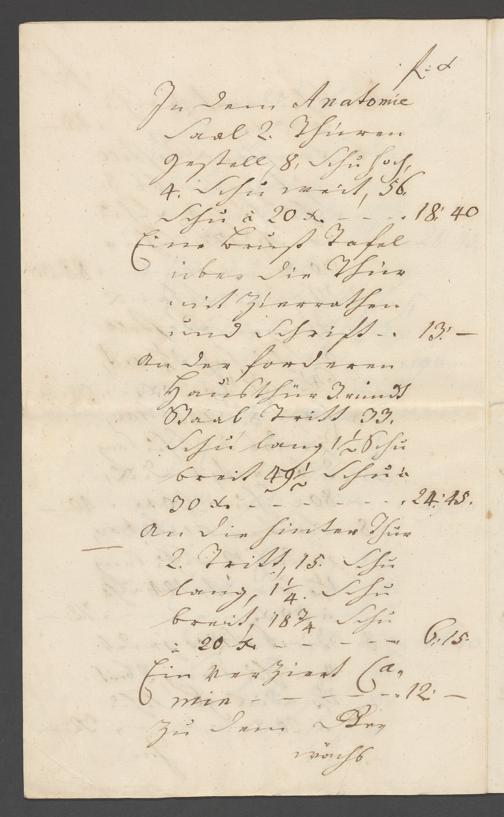 f: x
In dem Anatomie
Saal 2. Thüren
gestell, 8, Schu hoch,
4. Schu weit, 56.
Schu à 20 x. - - - . 18: 40
Eine Brust Tafel
über die Thür
mit Zierrathen
und Schrift - . 13: —
An der forderen
Hausthür 3 rundt
Staab Tritt 33.
Schu lang 1 1/2 Schu
breit 49 1/2 Schu à
30 x. - - - - - . 24: 45.
An die hinter Thür
2. Tritt, 15. Schu
lang, 1 1/4. Schu
breit, 18 3/4 Schu
à 20 x. - - - - - 6: 15
Ein verziert Ca-
min - - - - - - . 12: —
Zu dem Ge-
wächs